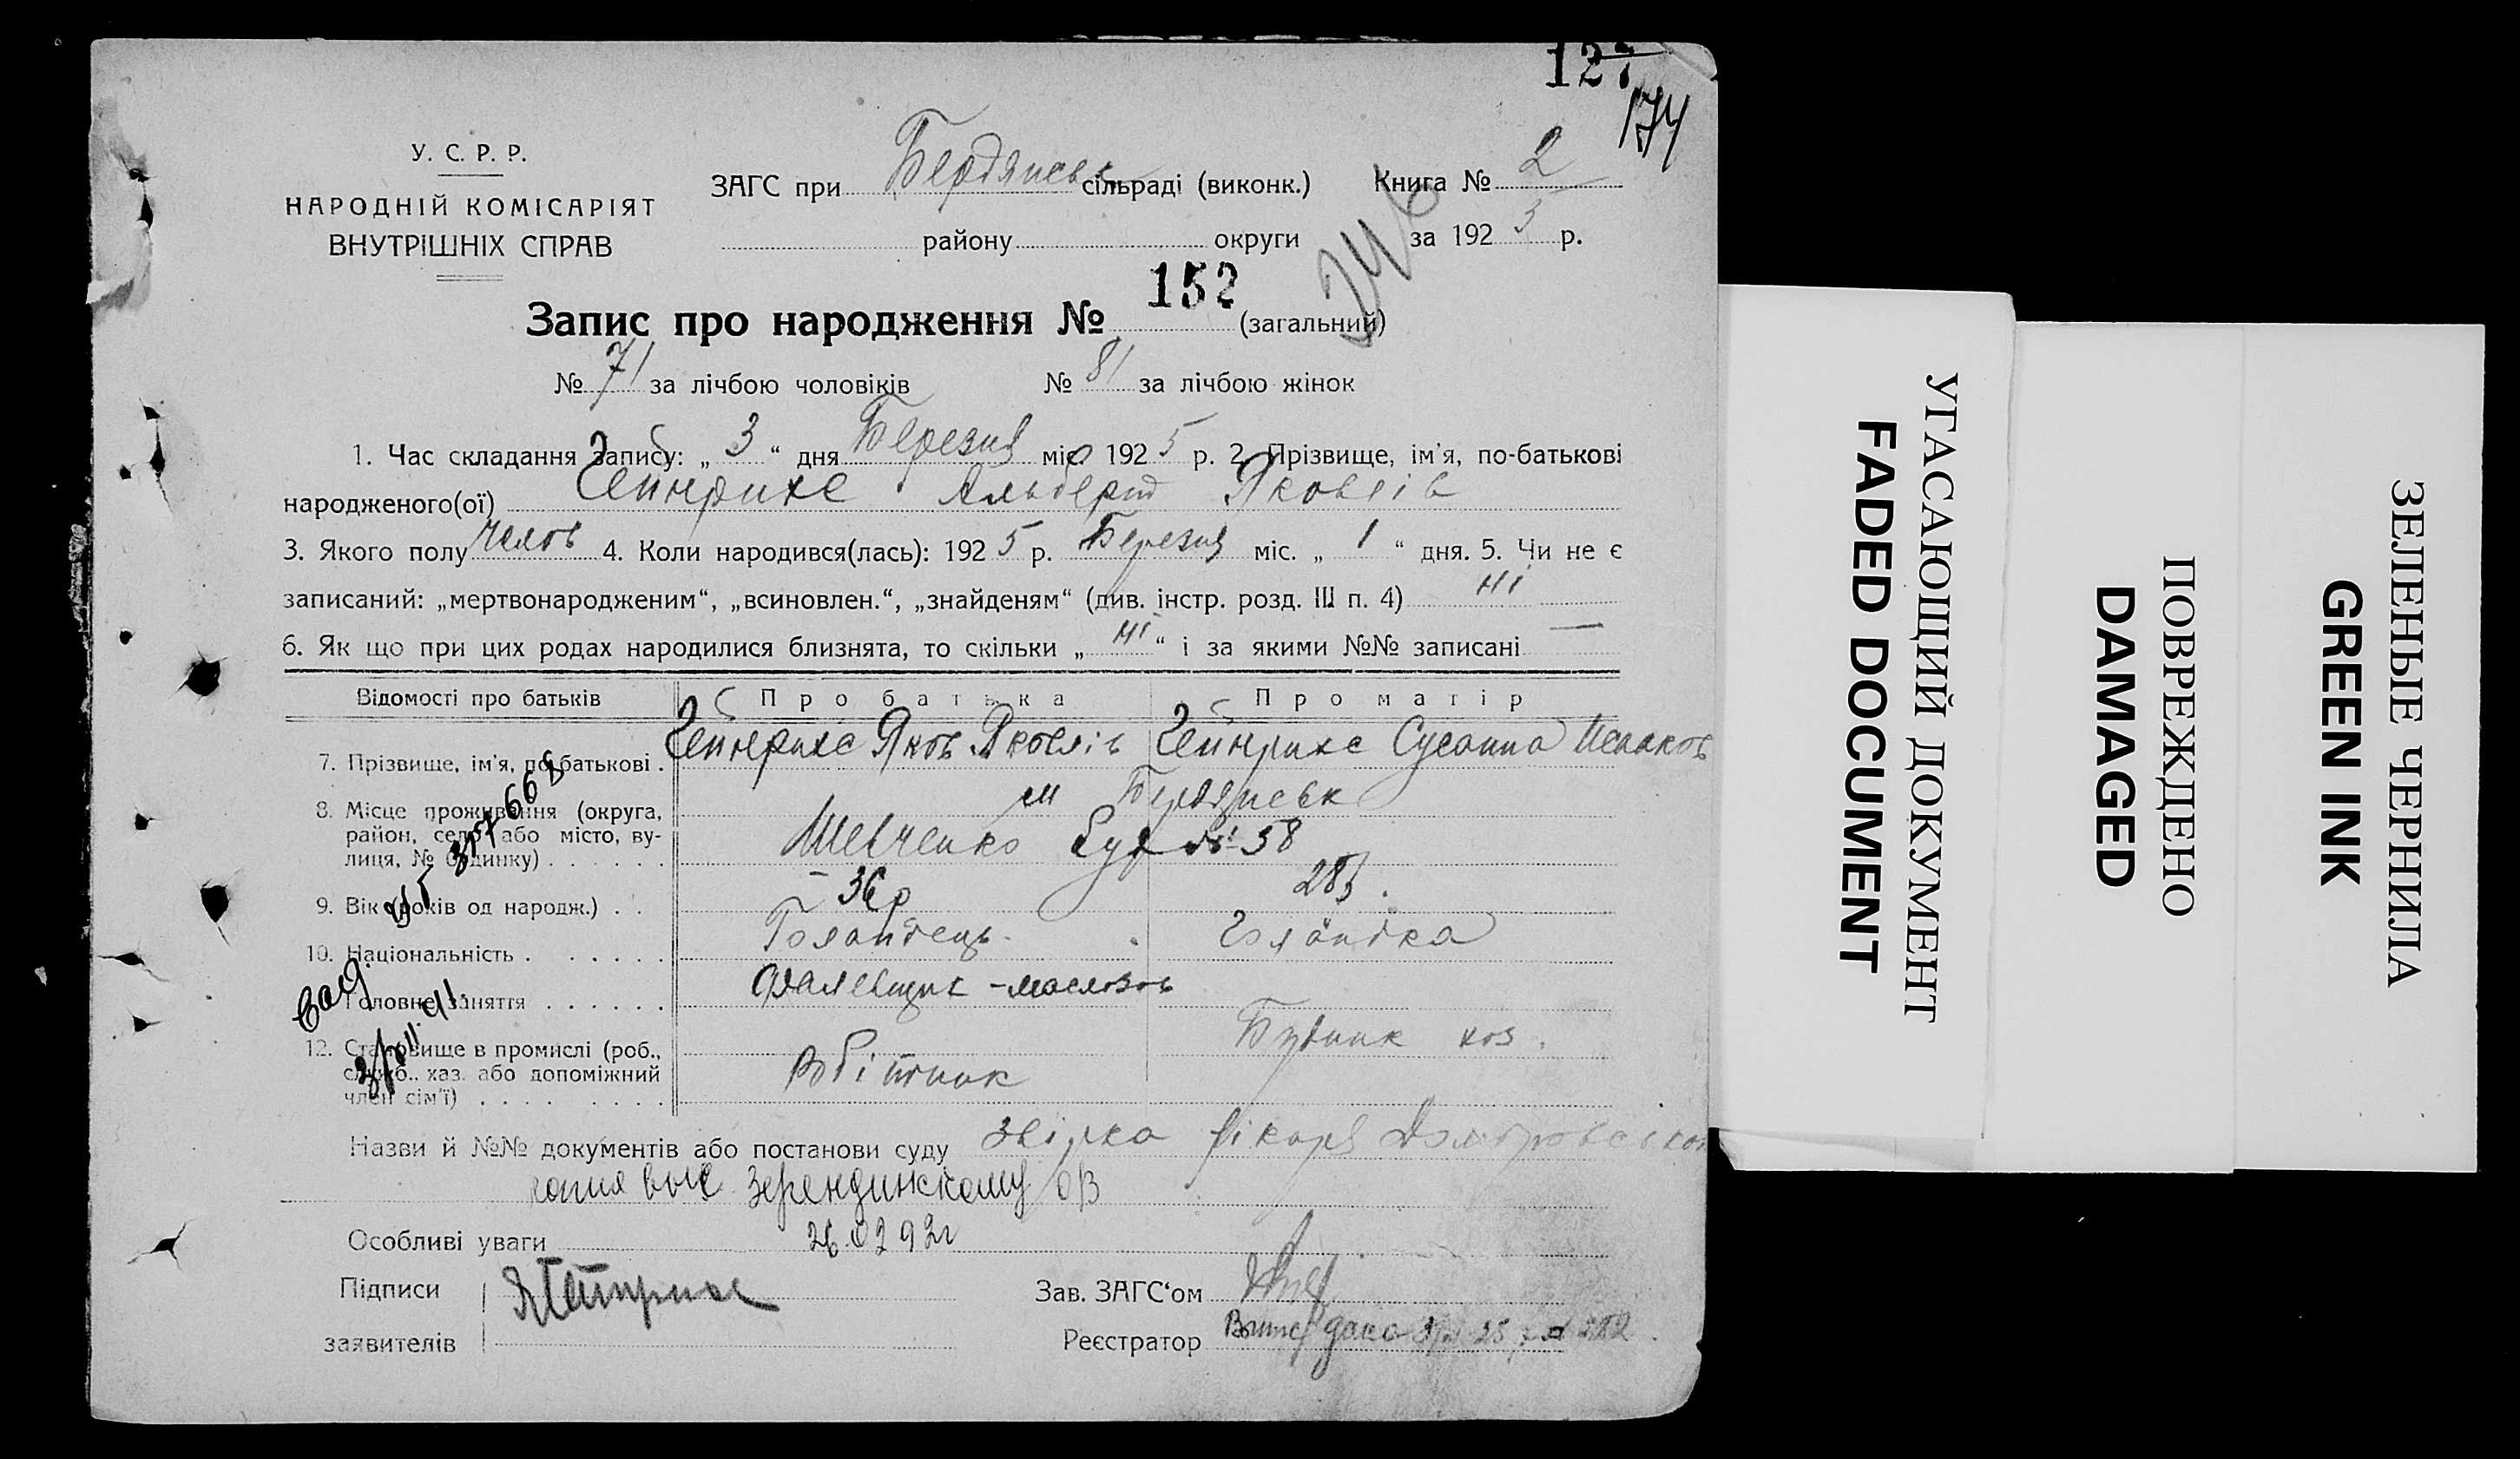 127
174
У. С. Р. Р.
НАРОДНІЙ КОМІСАРІЯТ
ВНУТРІШНІХ СПРАВ
ЗАГС при Бердянськ сільраді (виконк.) Книга № 2
району округи за 1925 р.
246
Запис про народження № 152 (загальний)
№ 71 за лічбою чоловіків № 81 за лічбою жінок
1. Час складання запису: „3“ дня Березня міс. 1925 р. 2. Прізвище, ім'я, по-батькові
народженого(ої) Гейнрихс Альберт Яковлів
3. Якого полу 4. Коли народився(лась): 1925 р. Березня міс. „1“ дня. 5. Чи не є
записаний: „мертвонародженим“, „всиновлен.“, „знайденям“ (див. інстр. розд. III п. 4) ні
6. Як що при цих родах народилися близнята, то скільки „ні“ і за якими №№ записані —
Відомості про батьків Про батька Про матір
7. Прізвище, ім'я, по-батькові . Гейнрихс Яков Яковлів Гейнрихс Сусанна Исааков
8. Місце проживання (округа, район, село або місто, вулиця, № будинку) . . . . . . м Бердянськ
Шевченко буд № 58
9. Вік (років од народж.) . . 36 р 28 р.
10. Національність . . . . . . Голандець Голандка
Головне заняття . . . . . .
12. Становище в промислі (роб., служб., хаз. або допоміжний член сім'ї) . . . . . . . . Робітник
Назви й №№ документів або постанови суду лікаря
копия выс Зерендинскому ОВ
Особливі уваги 26.02 92г
Підписи
заявителів
Зав. ЗАГС'ом
Реєстратор
УГАСАЮЩИЙ ДОКУМЕНТ
FADED DOCUMENT
ПОВРЕЖДЕНО
DAMAGED
ЗЕЛЕНЫЕ ЧЕРНИЛА
GREEN INK